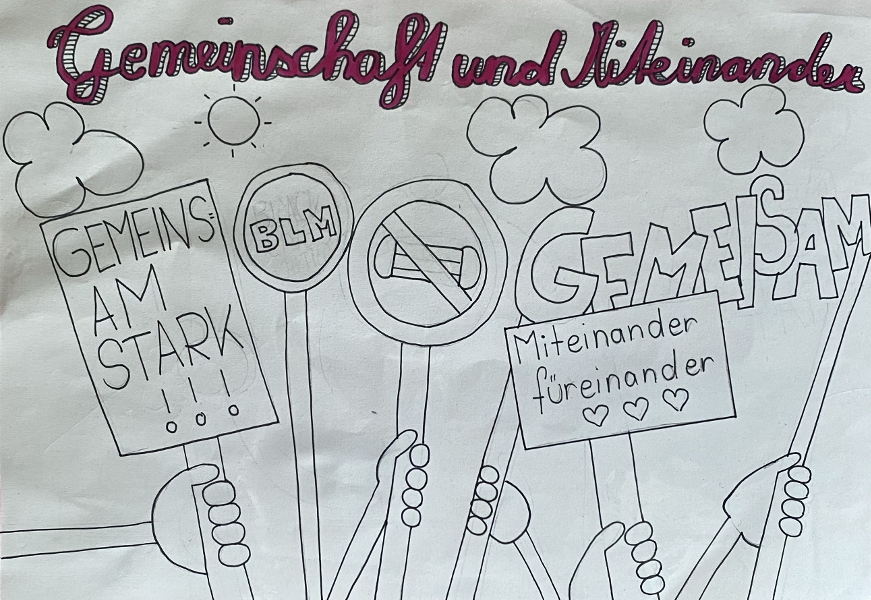 Gemeinschaft und Miteinander
GEMEINS=
AM
STARK
!!!
BLM
GEMEISAM
Miteinander
füreinander